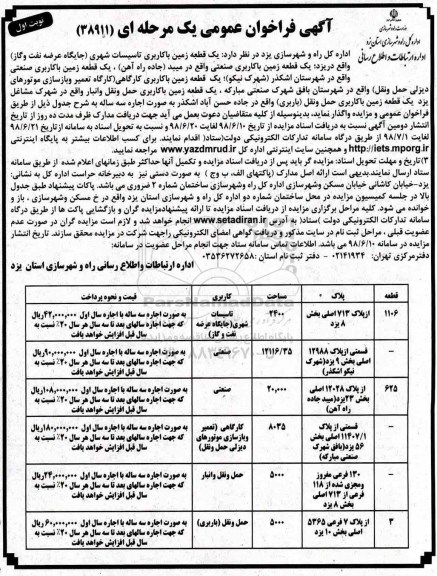 نوبت اول
آگهی فراخوان عمومی یک مرحله ای (۳۸۹۱۱)
وزارت راه و شهرسازی
اداره کل راه و شهرسازی استان یزد
اداره ارتباطات و اطلاع رسانی
اداره کل راه و شهرسازی یزد در نظر دارد: یک قطعه زمین باکاربری تاسیسات شهری (جایگاه عرضه نفت وگاز)
واقع دریزد؛ یک قطعه زمین باکاربری صنعتی واقع در میبد (جاده راه آهن) ، یک قطعه زمین باکاربری صنعتی
واقع در شهرستان اشکذر (شهرک نیکو)؛ یک قطعه زمین باکاربری کارگاهی(کارگاه تعمیر وبازسازی موتورهای
دیزلی حمل ونقل) واقع در شهرستان بافق شهرک صنعتی مبارکه ، یک قطعه زمین باکاربری حمل ونقل وانبار واقع در شهرک مشاغل
یزد یک قطعه زمین باکاربری حمل ونقل (باربری) واقع در جاده حسن آباد اشکذر به صورت اجاره سه ساله به شرح جدول ذیل از طریق
فراخوان عمومی و مزایده واگذار نماید، بدینوسیله از کلیه متقاضیان دعوت بعمل می آید جهت دریافت مدارک ظرف مدت ده روز از تاریخ
انتشار دومین آگهی نسبت به دریافت اسناد مزایده از تاریخ ۹۸/۶/۱۰ لغایت ۹۸/۶/۲۰ و نسبت به تحویل اسناد به سامانه ازتاریخ ۹۸/۶/۲۱
لغایت ۹۸/۷/۱ از طریق درگاه سامانه تدارکات الکترونیکی دولت(ستاد) اقدام نمایند. برای کسب اطلاعات بیشتر به پایگاه اینترنتی
http://iets.mporg.ir و همچنین سایت اینترنتی اداره کل www.yazdmrud.ir مراجعه نمایید.
۳)تاریخ و مهلت تحویل اسناد: مزایده گر باید پس از دریافت اسناد مزایده و تکمیل آنها حداکثر طبق زمانهای اعلام شده از طریق سامانه
ستاد ارسال نمایند.بدیهی است ارائه اصل مدارک (پاکتهای الف، ب وج ) به صورت دستی نیز به دبیرخانه حراست اداره کل به نشانی:
یزد-خیابان کاشانی خیابان مسکن وشهرسازی اداره کل راه وشهرسازی ساختمان شماره ۲ ضروری می باشد. پاکات پیشنهاد طبق جدول
بالا در جلسه کمیسیون مزایده در محل ساختمان شماره دو اداره کل راه و شهرسازی استان یزد واقع در خ مسکن وشهرسازی ، باز و
خوانده می شود. کلیه مراحل برگزاری مزایده از دریافت اسناد مزایده تا ارائه پیشنهادمزایده گران و بازگشایی پاکت ها از طریق درگاه
سامانه تدارکات الکترونیکی دولت (ستاد) به آدرس www.setadiran.ir انجام خواهد شد و لازم است مزایده گران در صورت عدم
عضویت قبلی ، مراحل ثبت نام در سایت مذکور و دریافت گواهی امضای الکترونیکی راجهت شرکت در مزایده محقق سازند. تاریخ انتشار
مزایده در سامانه ۹۸/۶/۱۰ می باشد. اطلاعات تماس سامانه ستاد جهت انجام مراحل عضویت در سامانه:
دفترمرکزی تهران: ۰۲۱۴۱۹۳۴ - دفتر ثبت نام استان :۰۳۵۳۶۲۷۲۶۵۸
اداره ارتباطات واطلاع رسانی راه و شهرسازی استان یزد
قطعه پلاک مساحت کاربری قیمت و نحوه پرداخت
۱۱۰۶ ازپلاک ۷۱۳ اصلی بخش ۸ یزد ۲۴۰۰ تاسیسات شهری(جایگاه عرضه نفت و گاز) به صورت اجاره سه ساله با اجاره سال اول ۴۲,۰۰۰,۰۰۰ریال که جهت اجاره سالهای بعد تا سه سال هر سال ۲۰٪ نسبت به سال قبل افزایش خواهد یافت
– قسمتی ازپلاک ۱۲۹۸۸ اصلی بخش ۹ یزد(شهرک نیکو اشکذر) ۱۲۱۱۶/۳۵ صنعتی به صورت اجاره سه ساله با اجاره سال اول ۹۰,۰۰۰,۰۰۰ریال که جهت اجاره سالهای بعد تا سه سال هر سال ۲۰٪ نسبت به سال قبل افزایش خواهد یافت
۶۲۵ از پلاک ۱۲۰۲۸ اصلی بخش ۲۳یزد(میبد جاده راه آهن) ۲۰,۰۰۰ صنعتی به صورت اجاره سه ساله با اجاره سال اول ۱۰۸,۰۰۰,۰۰۰ریال که جهت اجاره سالهای بعد تا سه سال هر سال ۲۰٪ نسبت به سال قبل افزایش خواهد یافت
– قسمتی از پلاک ۱۱۴۰۷/۱ اصلی بخش ۵۶ یزد(بافق شهرک صنعتی مبارکه) ۸۰۳۵ کارگاهی (تعمیر وبازسازی موتورهای دیزلی حمل ونقل) به صورت اجاره سه ساله با اجاره سال اول ۱۸۰,۰۰۰,۰۰۰ریال که جهت اجاره سالهای بعد تا سه سال هر سال ۲۰٪ نسبت به سال قبل افزایش خواهد یافت
– ۱۳۰ فرعی مفروز ومجزی شده از ۱۱۸ فرعی از ۷۱۳ اصلی بخش ۸ یزد ۵۰۰۰ حمل ونقل وانبار به صورت اجاره سه ساله با اجاره سال اول ۲۴,۰۰۰,۰۰۰ریال که جهت اجاره سالهای بعد تا سه سال هر سال ۲۰٪ نسبت به سال قبل افزایش خواهد یافت
۳ از پلاک ۷ فرعی ۵۳۶۵ اصلی بخش ۱۰ یزد ۵۰۰۰ حمل ونقل (باربری) به صورت اجاره سه ساله با اجاره سال اول ۶۰,۰۰۰,۰۰۰ریال که جهت اجاره سالهای بعد تا سه سال هر سال ۲۰٪ نسبت به سال قبل افزایش خواهد یافت